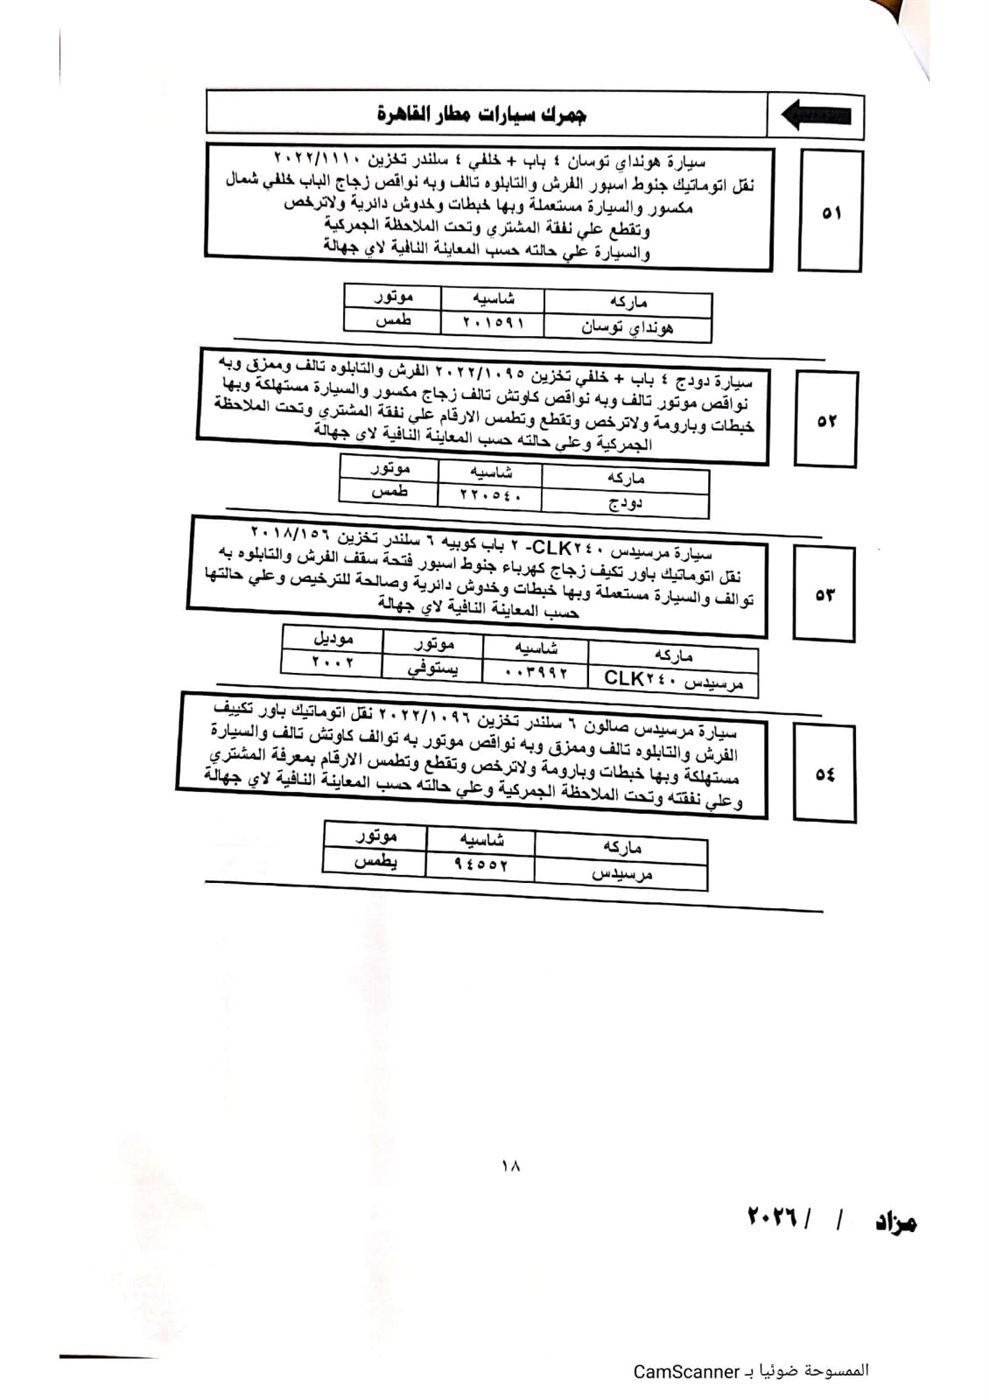 جمرك سيارات مطار القاهرة
٥١
سيارة هونداي توسان ٤ باب + خلفي ٤ سلندر تخزين ٢٠٢٢/١١١٠
نقل اتوماتيك جنوط اسبور الفرش والتابلوه تالف وبه نواقص زجاج الباب خلفي شمال
مكسور والسيارة مستعملة وبها خبطات وخدوش دائرية ولاترخص
وتقطع علي نفقة المشتري وتحت الملاحظة الجمركية
والسيارة علي حالته حسب المعاينة النافية لاي جهالة
ماركه شاسيه موتور
هونداي توسان ٢٠١٥٩١ طمس
٥٢
سيارة دودج ٤ باب + خلفي تخزين ٢٠٢٢/١٠٩٥ الفرش والتابلوه تالف وممزق وبه
نواقص موتور تالف وبه نواقص كاوتش تالف زجاج مكسور والسيارة مستهلكة وبها
خبطات وبارومة ولاترخص وتقطع وتطمس الارقام علي نفقة المشتري وتحت الملاحظة
الجمركية وعلي حالته حسب المعاينة النافية لاي جهالة
ماركه شاسيه موتور
دودج ٢٢٠٥٤٠ طمس
٥٣
سيارة مرسيدس CLK٢٤٠- ٢ باب كوبيه ٦ سلندر تخزين ٢٠١٨/١٥٦
نقل اتوماتيك باور تكيف زجاج كهرباء جنوط اسبور فتحة سقف الفرش والتابلوه به
توالف والسيارة مستعملة وبها خبطات وخدوش دائرية وصالحة للترخيص وعلي حالتها
حسب المعاينة النافية لاي جهالة
ماركه شاسيه موتور موديل
مرسيدس CLK٢٤٠ ٠٠٣٩٩٢ يستوفي ٢٠٠٢
٥٤
سيارة مرسيدس صالون ٦ سلندر تخزين ٢٠٢٢/١٠٩٦ نقل اتوماتيك باور تكييف
الفرش والتابلوه تالف وممزق وبه نواقص موتور به توالف كاوتش تالف والسيارة
مستهلكة وبها خبطات وبارومة ولاترخص وتقطع وتطمس الارقام بمعرفة المشتري
وعلي نفقته وتحت الملاحظة الجمركية وعلي حالته حسب المعاينة النافية لاي جهالة
ماركه شاسيه موتور
مرسيدس ٩٤٥٥٢ يطمس
١٨
مزاد / / ٢٠٢٦
الممسوحة ضوئيا بـ CamScanner